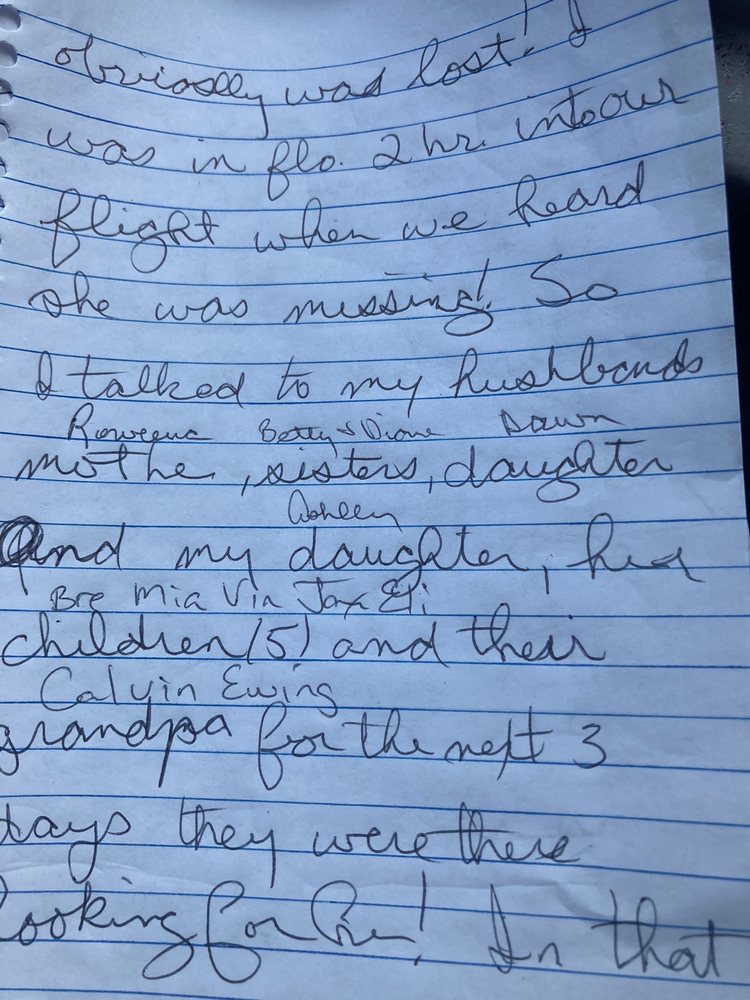 obviously was lost! I
was in flo. 2 hr. into our
flight when we heard
she was missing! So
I talked to my hushbands
Rowena Betty & Diane Dawn
mothe, sisters, daughter
Ashley
and my daughter, her
Bre Mia Via Jax Eli
children (5) and their
Calvin Ewing
grandpa for the next 3
days they were there
looking for Bre! In that